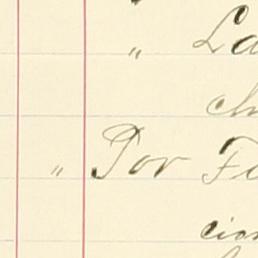 " La
ch
" For Fe
cion